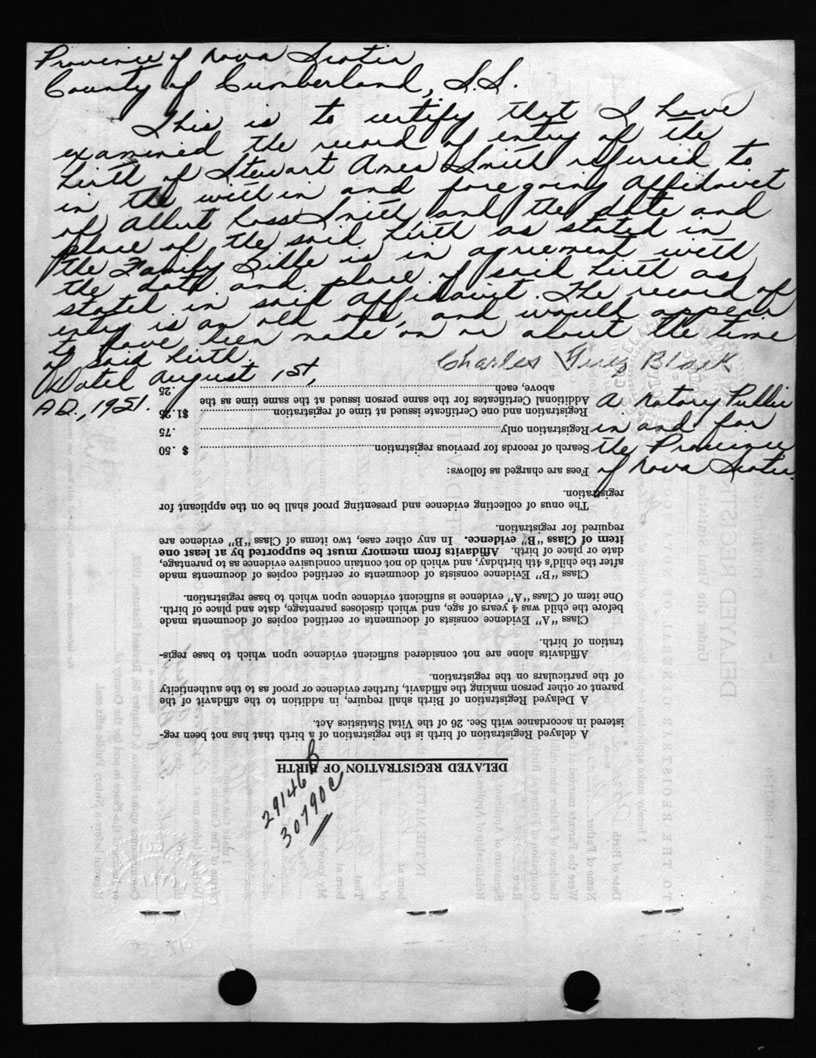 Province of Nova Scotia
County of Cumberland, S.S.
This is to certify that I have
examined the record of entry of the
birth of Stewart Ames Smith referred to
in the within and foregoing affidavit
of Albert Ross Smith and the date and
place of the said birth as stated in
the Family Bible is in agreement with
the date and place of said birth as
stated in said affidavit. The record of
entry is an old one, and would appear
to have been made on or about the time
of said birth.
Dated August 1st,
A.D., 1951.
Charles Black
A Notary Public
in and for
the Province
of Nova Scotia.
29146 b
30790 c
DELAYED REGISTRATION OF BIRTH
A delayed Registration of birth is the registration of a birth that has not been reg-
istered in accordance with Sec. 26 of the Vital Statistics Act.
A Delayed Registration of Birth shall require, in addition to the affidavit of the
parent or other person making the affidavit, further evidence or proof as to the authenticity
of the particulars on the registration.
Affidavits alone are not considered sufficient evidence upon which to base regis-
tration of birth.
Class "A" Evidence consists of documents or certified copies of documents made
before the child was 4 years of age, and which discloses parentage, date and place of birth.
One item of Class "A" evidence is sufficient evidence upon which to base registration.
Class "B" Evidence consists of documents or certified copies of documents made
after the child's 4th birthday, and which do not contain conclusive evidence as to parentage,
date or place of birth. Affidavits from memory must be supported by at least one
item of Class "B" evidence. In any other case, two items of Class "B" evidence are
required for registration.
The onus of collecting evidence and presenting proof shall be on the applicant for
registration.
Fees are charged as follows:
Search of records for previous registration $ .50
Registration only .75
Registration and one Certificate issued at time of registration $1.25
Additional Certificates for the same person issued at the same time as the
above, each .25